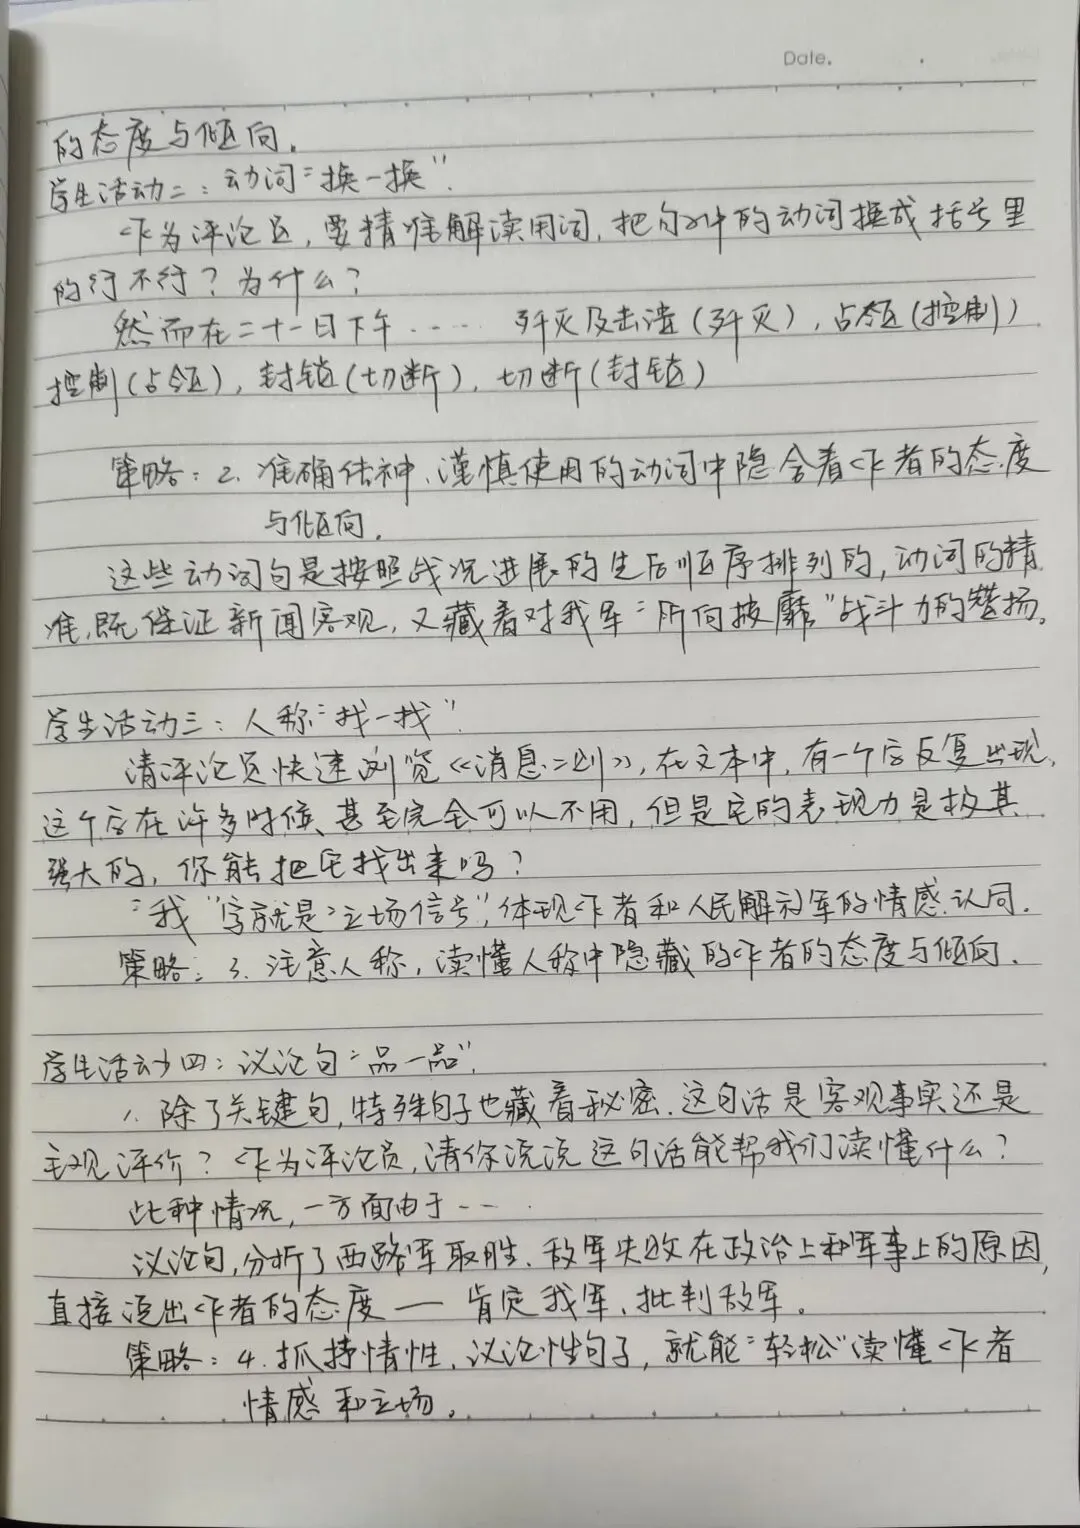 Date.
的态度与倾向。
学生活动二：动词“换一换”。
作为评论员，要精准解读用词，把句子中的动词换成括号里
的行不行？为什么？
然而在二十一日下午…… 歼灭及击溃（歼灭），占领（控制）
控制（占领），封锁（切断），切断（封锁）
策略：2. 准确传神、谨慎使用的动词中隐含着作者的态度
与倾向。
这些动词句是按照战况进展的先后顺序排列的，动词的精
准，既保证新闻客观，又藏着对我军“所向披靡”战斗力的赞扬。
学生活动三：人称“找一找”
请评论员快速浏览《消息二则》，在文本中，有一个字反复出现，
这个字在许多时候、甚至完全可以不用，但是它的表现力是极其
强大的，你能把它找出来吗？
“我”字就是“立场信号”，体现作者和人民解放军的情感认同。
策略：3. 注意人称，读懂人称中隐藏的作者的态度与倾向。
学生活动四：议论句“品一品”。
1. 除了关键句，特殊句子也藏着秘密。这句话是客观事实还是
主观评价？作为评论员，请你说说这句话能帮我们读懂什么？
此种情况，一方面由于……
议论句，分析了西路军取胜、敌军失败在政治上和军事上的原因，
直接说出作者的态度——肯定我军、批判敌军。
策略：4. 抓抒情性、议论性句子，就能“轻松”读懂作者
情感和立场。